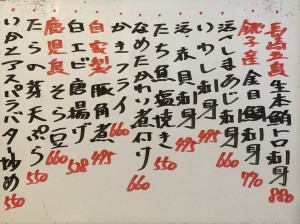 長崎五島 生本鮪トロ刺身 880
銚子産 金目鯛刺身 770
活〆しまあじ刺身 660
いわし刺身 495
活赤貝刺身 495
たち魚塩焼き 550
なめたかれい煮付け 660
かきフライ 660
自家製 豚角煮 495
白エビ唐揚げ 528
鹿児島 そら豆 660
たらの芽天ぷら 550
いかとアスパラバター炒め 550